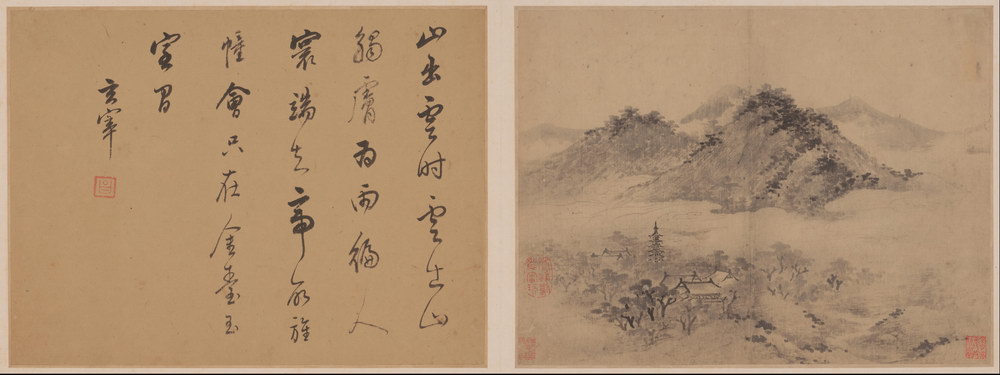 山出雲時雲出山
觸膚為雨徧人
寰端知帝所旌
幢會只在金臺玉
室間
玄宰